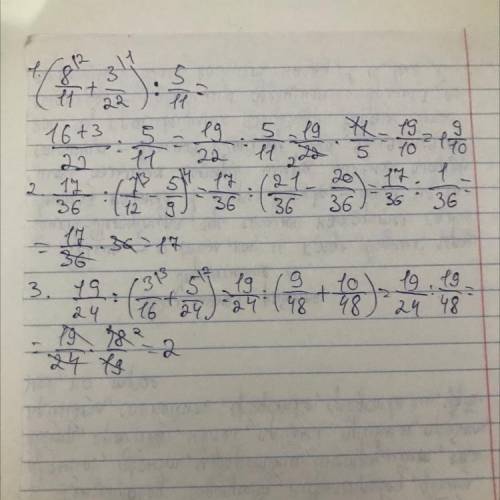 1. (8/11^{\2} + 3/22^{\1}) : 5/11 =
(16+3)/22 : 5/11 = 19/22 : 5/11 = 19/22 · 11/5 = 19/10 = 1 9/10
2. 17/36 : (7/12^{\3} - 5/9^{\4}) = 17/36 : (21/36 - 20/36) = 17/36 : 1/36 =
= 17/36 · 36 = 17
3. 19/24 : (3/16^{\3} + 5/24^{\2}) = 19/24 : (9/48 + 10/48) = 19/24 : 19/48 =
= 19/24 · 48/19 = 2